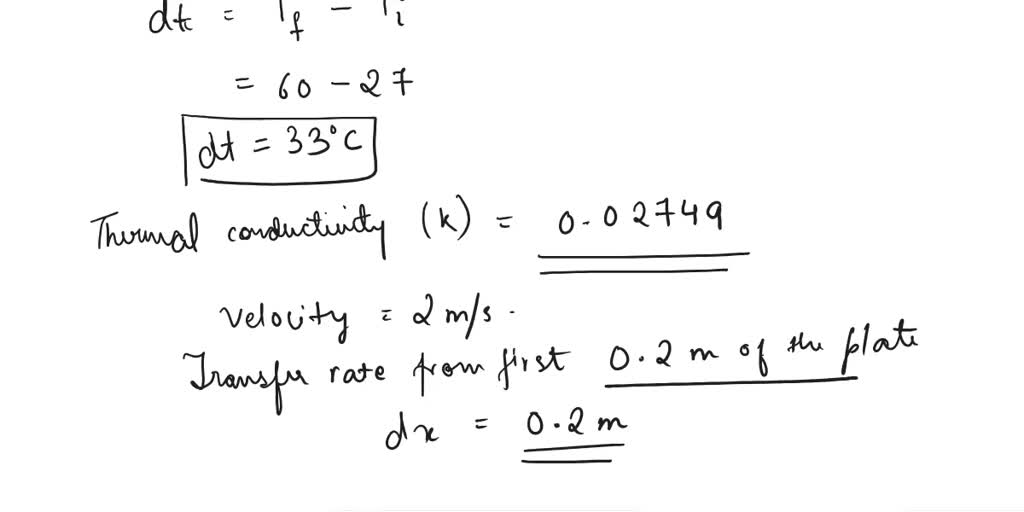 dt = Tf - Ti
= 60 - 27
dt = 33°C
Thermal conductivity (k) = 0.02749
Velocity = 2 m/s.
Transfer rate from first 0.2 m of the plate
dx = 0.2 m